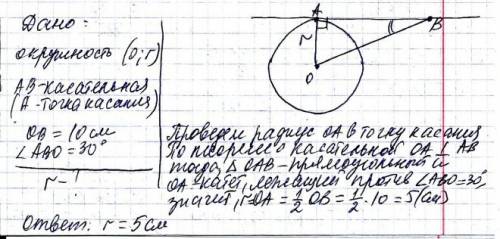 Дано:
окружность (О; r)
АВ-касательная
(А-точка касания)
ОВ = 10 см
∠АВО = 30°
r - ?
А
В
r
О
Проведем радиус ОА в точку касания
По теореме о касательной ОА ⊥ АВ
тогда, △ ОАВ - прямоугольный и
ОА-катет, лежащий против ∠АВО=30°,
значит, r=ОА = 1/2 ОВ = 1/2 · 10 = 5 (см)
Ответ: r = 5 см